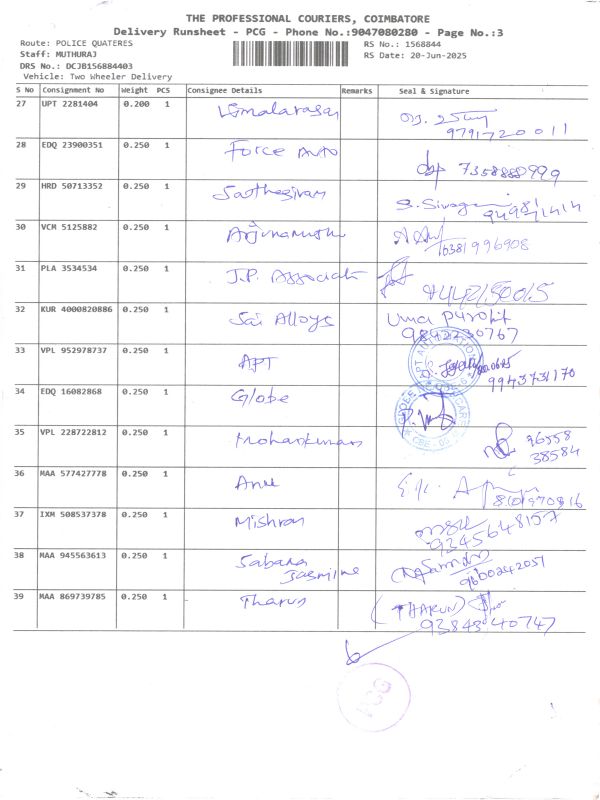 THE PROFESSIONAL COURIERS, COIMBATORE
Delivery Runsheet - PCG - Phone No.:9047080280 - Page No.:3
Route: POLICE QUATERES
Staff: MUTHURAJ
DRS No.: DCJB156884403
Vehicle: Two Wheeler Delivery
RS No.: 1568844
RS Date: 20-Jun-2025
S No Consignment No Weight PCS Consignee Details Remarks Seal & Signature
27 UPT 2281404 0.200 1 Vimalarasan
9791720011
28 EDQ 23900351 0.250 1 Force Auto
7358888999
29 HRD 50713352 0.250 1
30 VCM 5125882 0.250 1
6381996908
31 PLA 3534534 0.250 1 J.P. Associate
9442150015
32 KUR 4000820886 0.250 1 Sai Alloys Uma Purohit
9842230767
33 VPL 952978737 0.250 1 APT
9943731170
34 EDQ 16082868 0.250 1 Globe
35 VPL 228722812 0.250 1 Mohankumar 96558
38584
36 MAA 577427778 0.250 1 Anu
37 IXM 508537378 0.250 1
9345648157
38 MAA 945563613 0.250 1 Sabana
Jasmine
9600242057
39 MAA 869739785 0.250 1 Tharun (THARUN)
9384340747
PCG